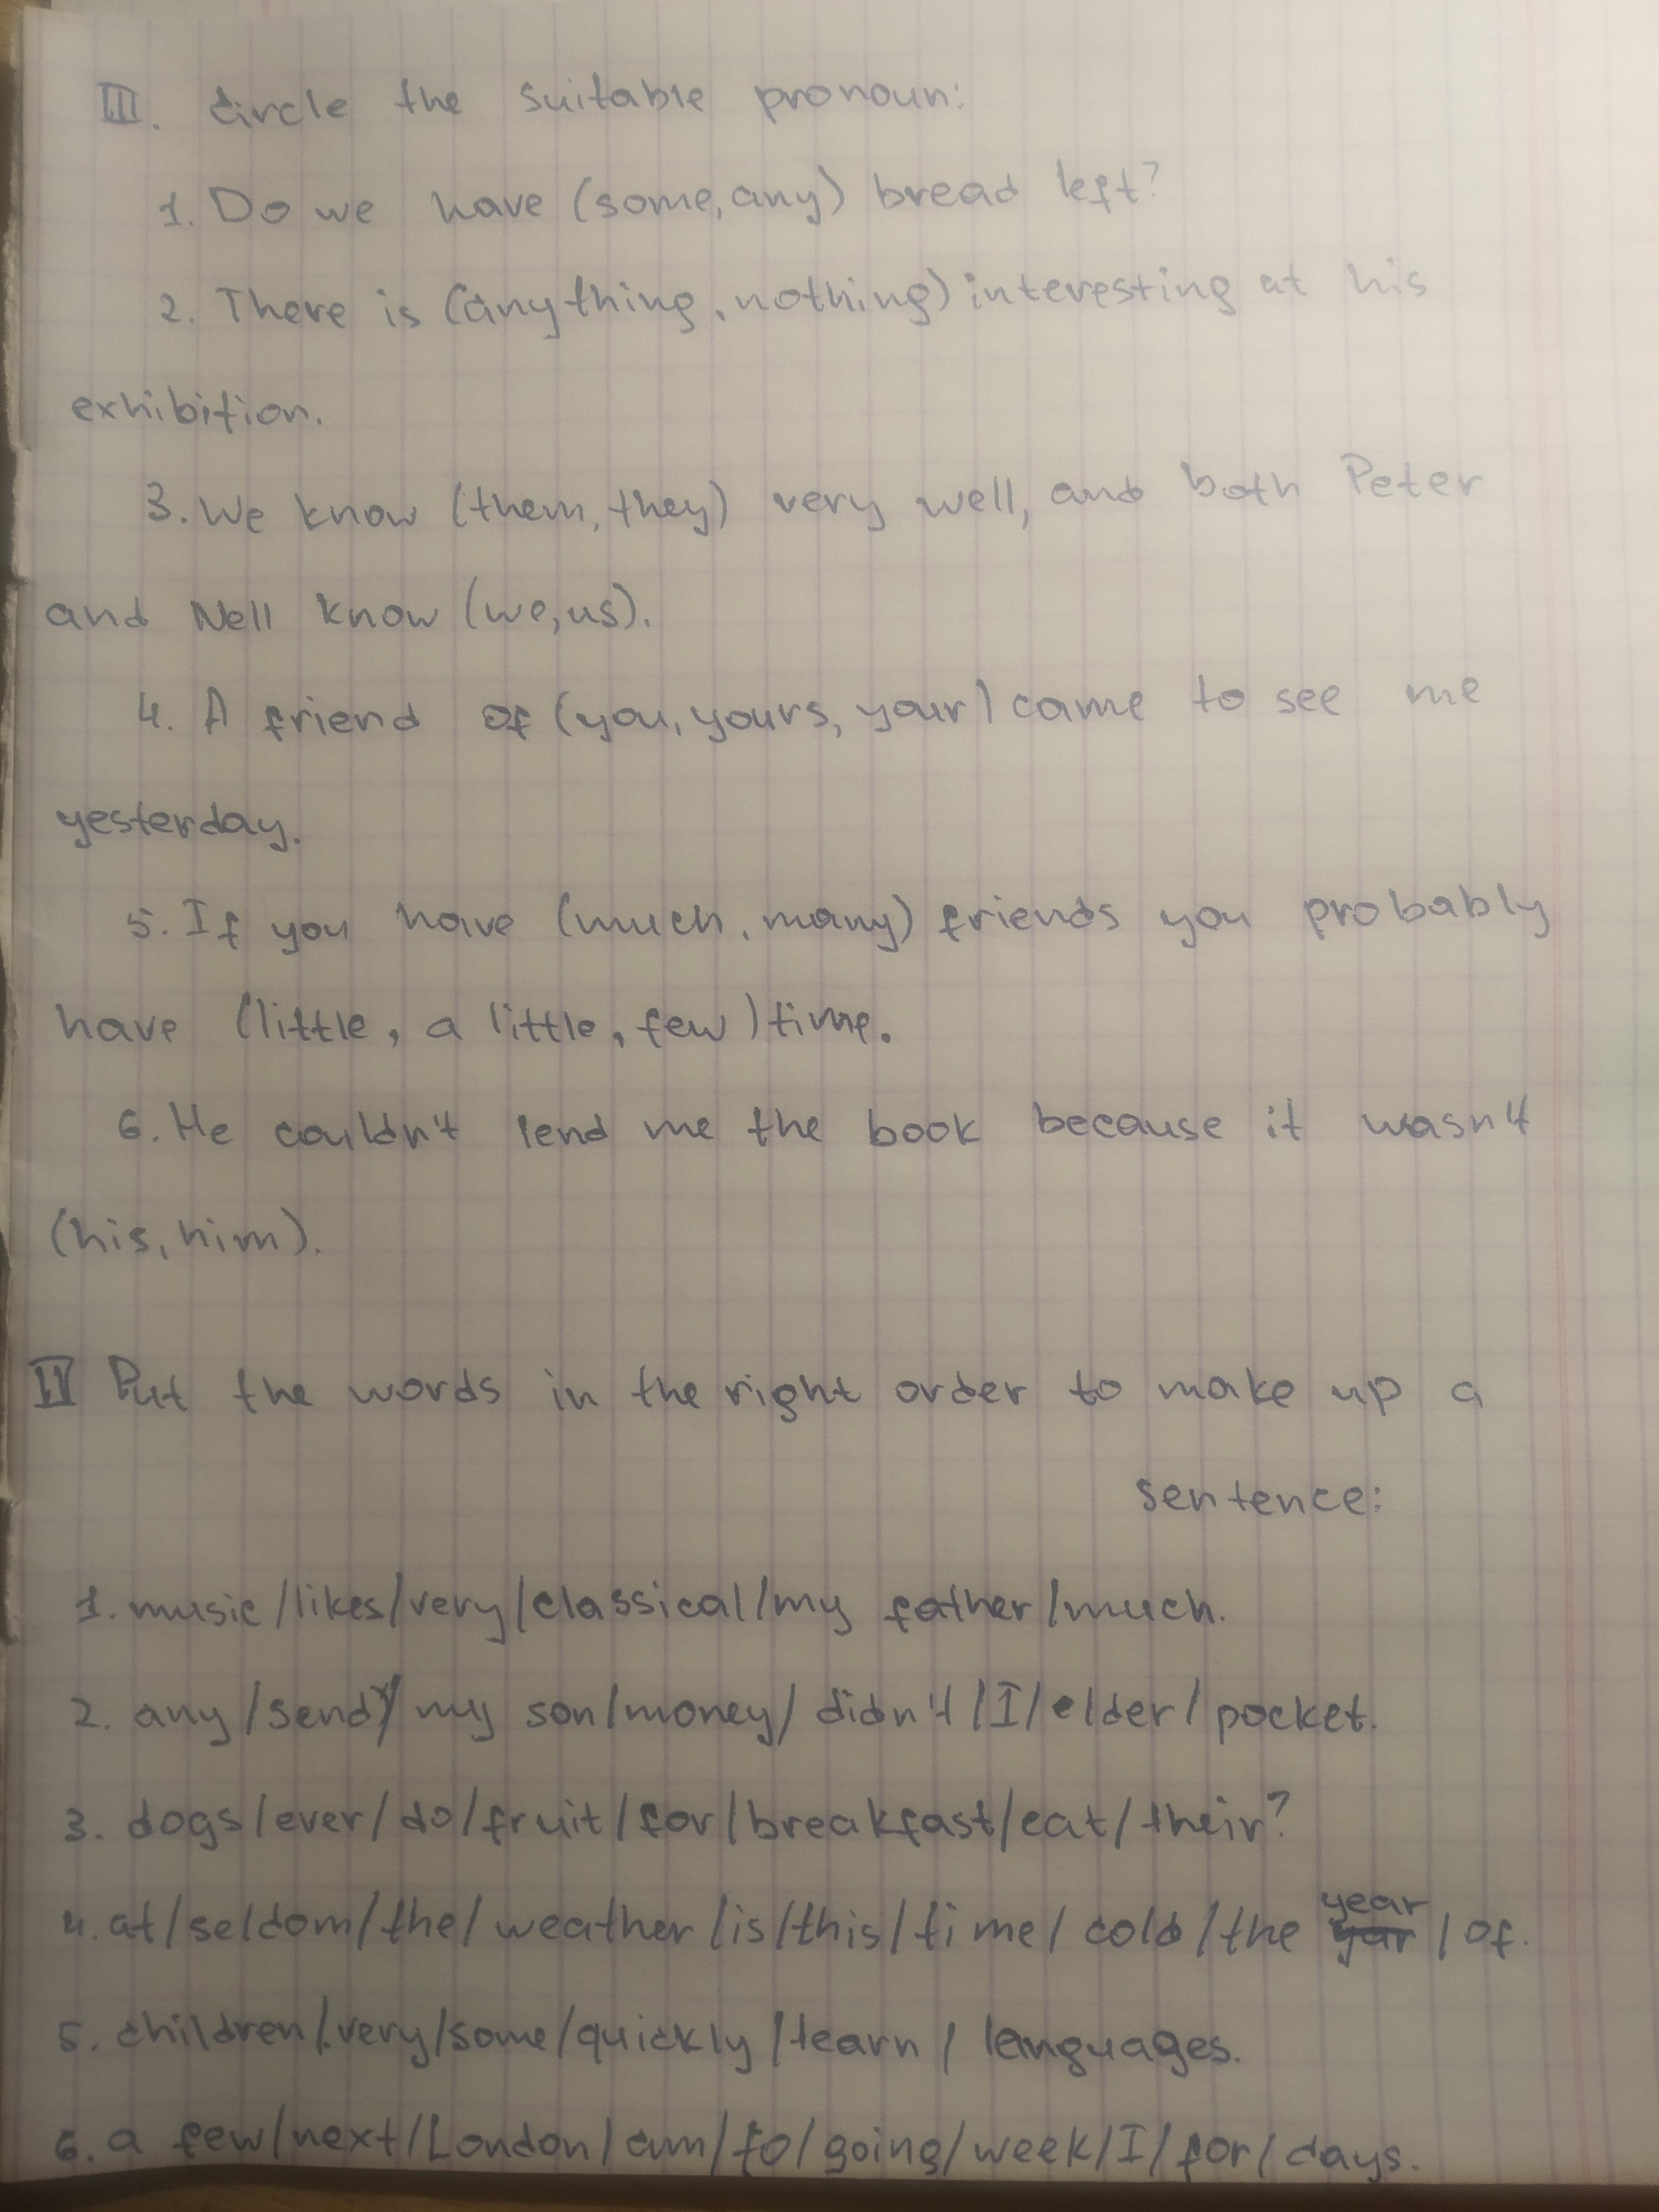 III. Circle the suitable pronoun:
1. Do we have (some, any) bread left?
2. There is (anything, nothing) interesting at his
exhibition.
3. We know (them, they) very well, and both Peter
and Nell know (we, us).
4. A friend of (you, yours, your) came to see me
yesterday.
5. If you have (much, many) friends you probably
have (little, a little, few) time.
6. He couldn't lend me the book because it wasn't
(his, him).
II Put the words in the right order to make up a
sentence:
1. music/likes/very/classical/my father/much.
2. any/send/my son/money/didn't/I/elder/pocket.
3. dogs/ever/do/fruit/for/breakfast/eat/their?
4. at/seldom/the/weather/is/this/time/cold/the year/of.
5. children/very/some/quickly/learn/languages.
6. a few/next/London/am/to/going/week/I/for/days.